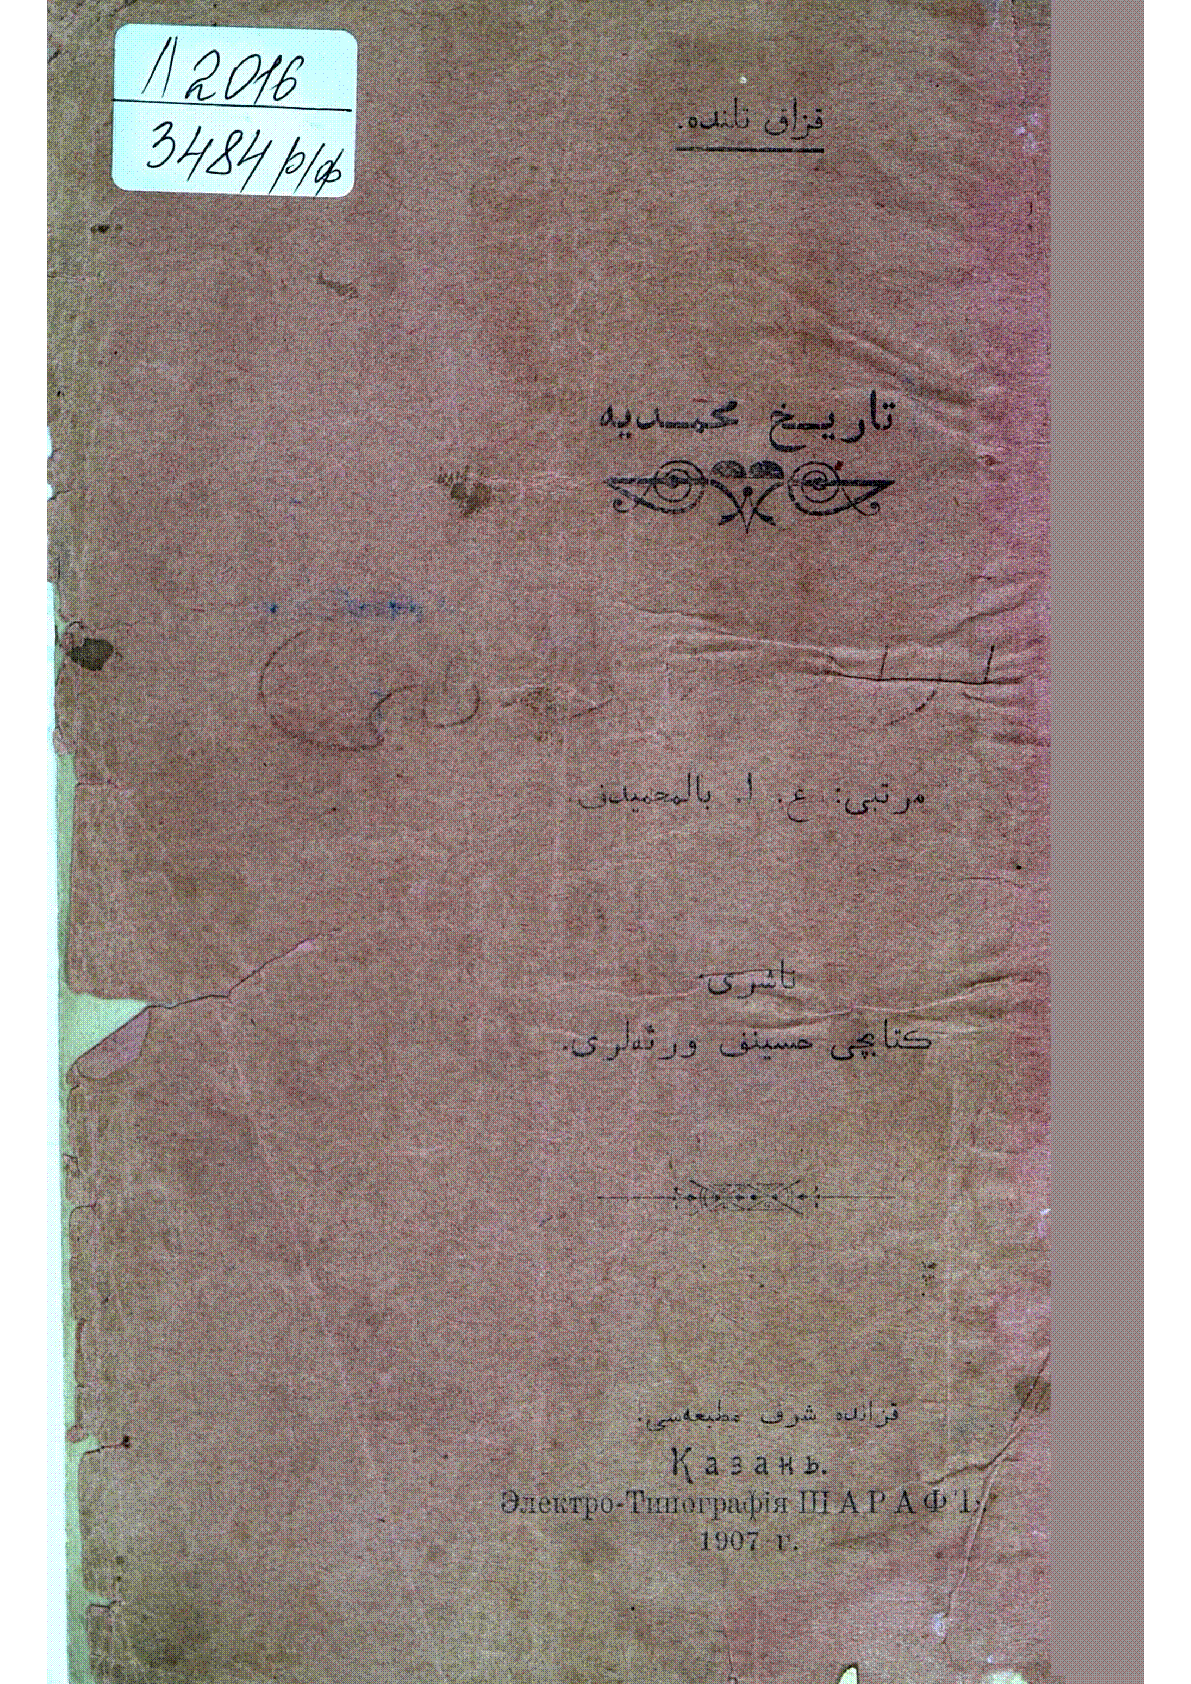 Л 2016
3484 р/ф
قزاق تلنده.
تاريخ محمديه
مرتبى: ع. ا.
ناشرى
كتابچى حسينف ورثەلرى.
قزانده شرف مطبعەسى.
Казань.
Электро-Типографія ШАРАФЪ.
1907 г.